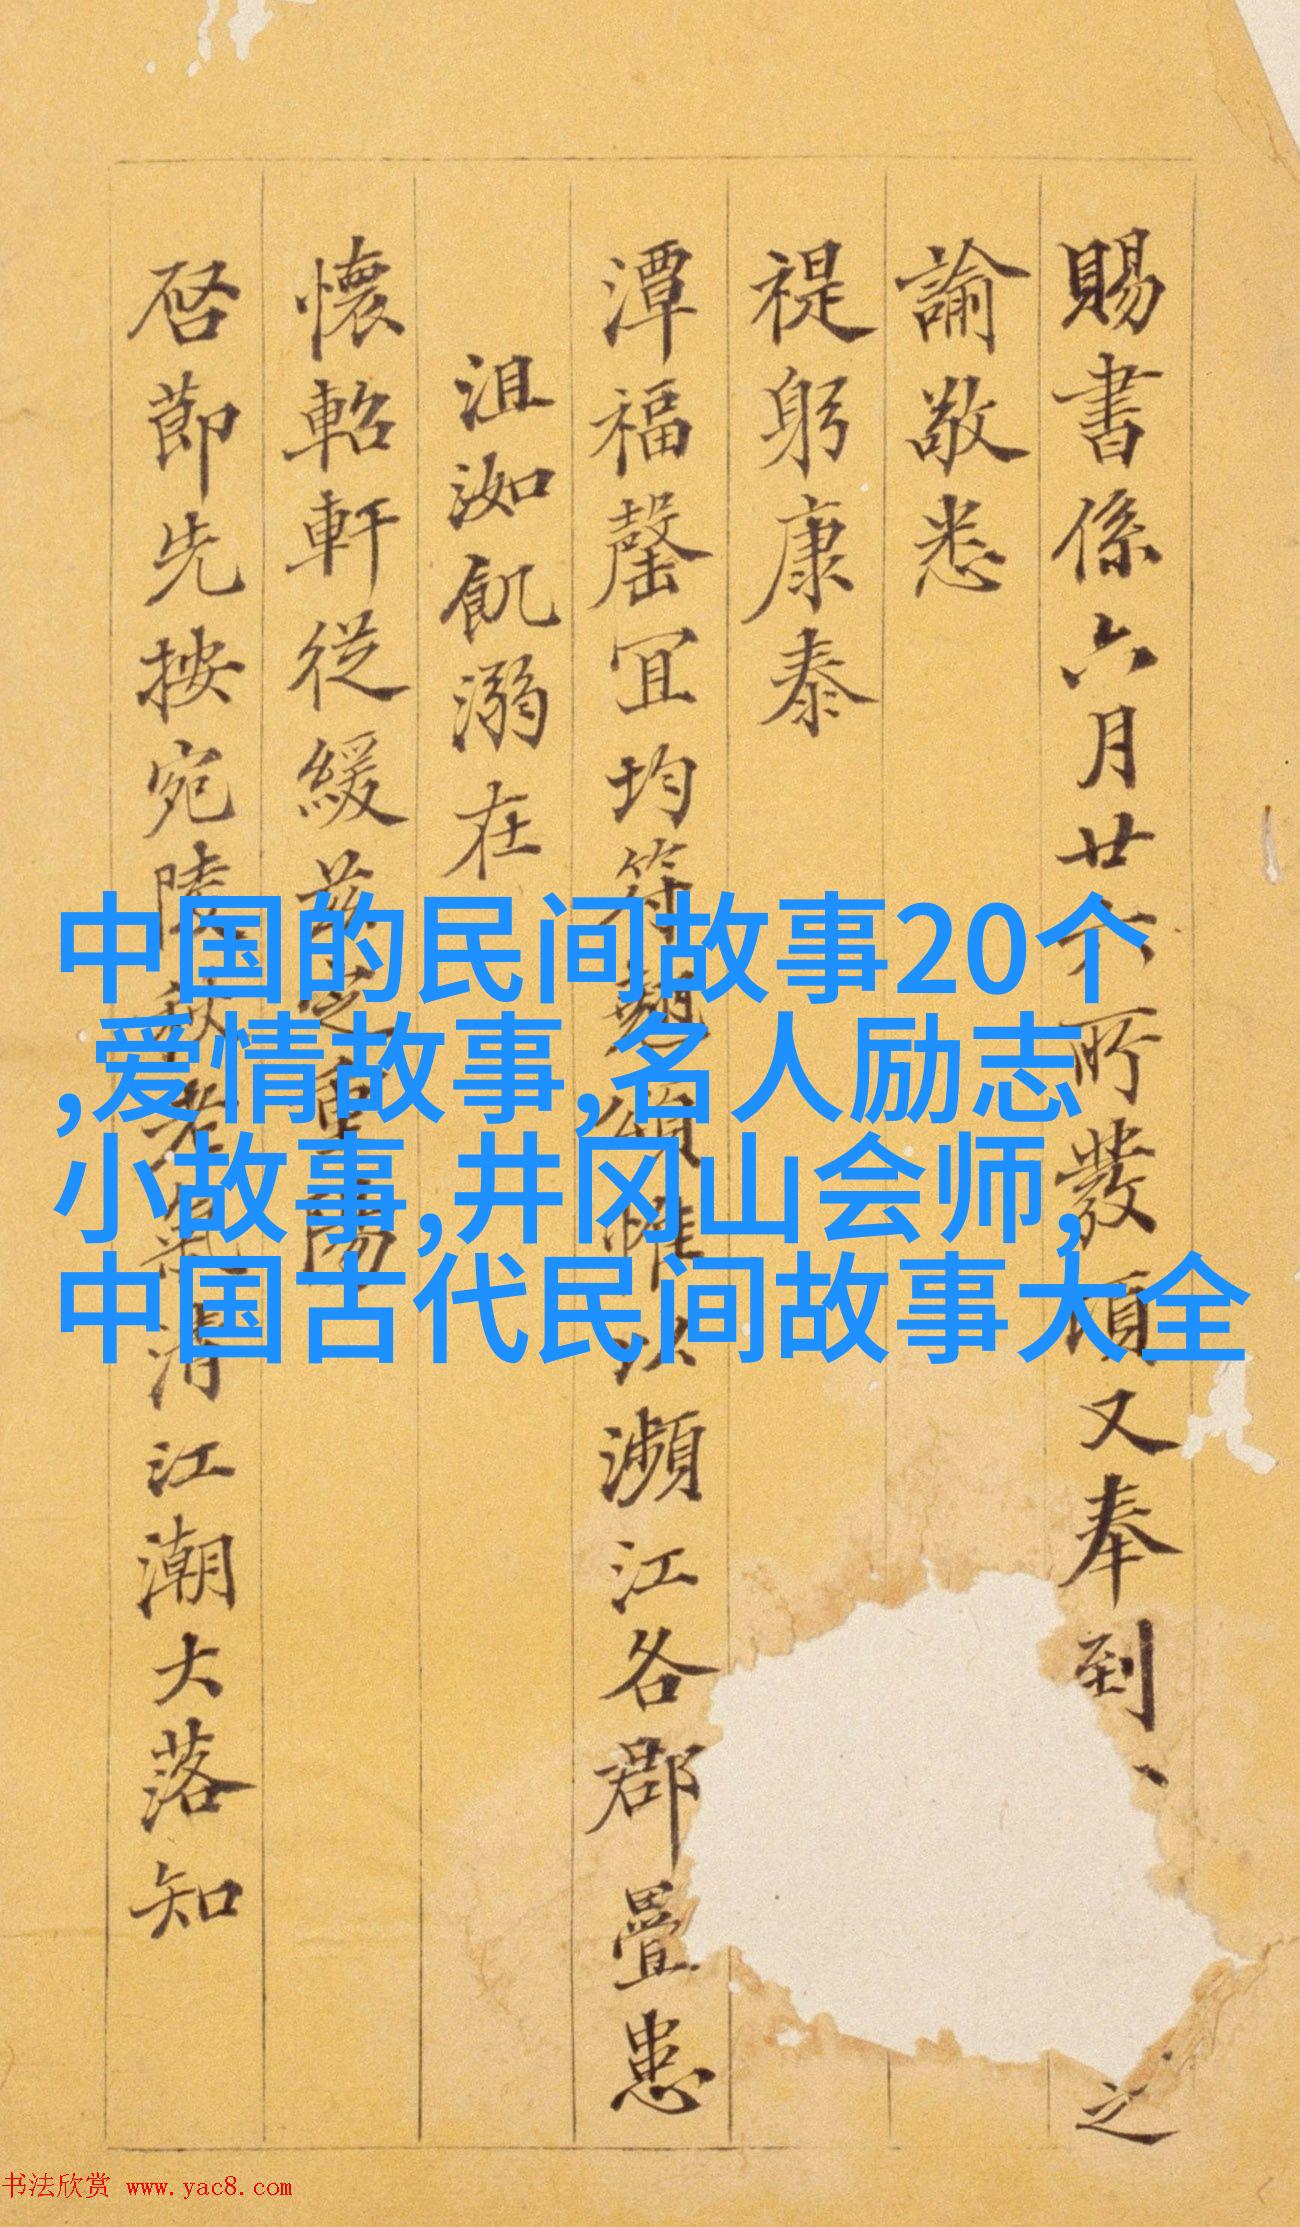 賜書係六月廿六所發頃又奉到、之
諭敬悉
禔躬康泰
潭福罄宜均符頌惟以瀕江各郡疊患
沮洳飢溺在
懷軺軒從緩
啓節先按宛陵清江潮大落知
中国的民间故事20个
,爱情故事,名人励志
小故事,井冈山会师,
中国古代民间故事大全
书法欣赏 www.yac8.com